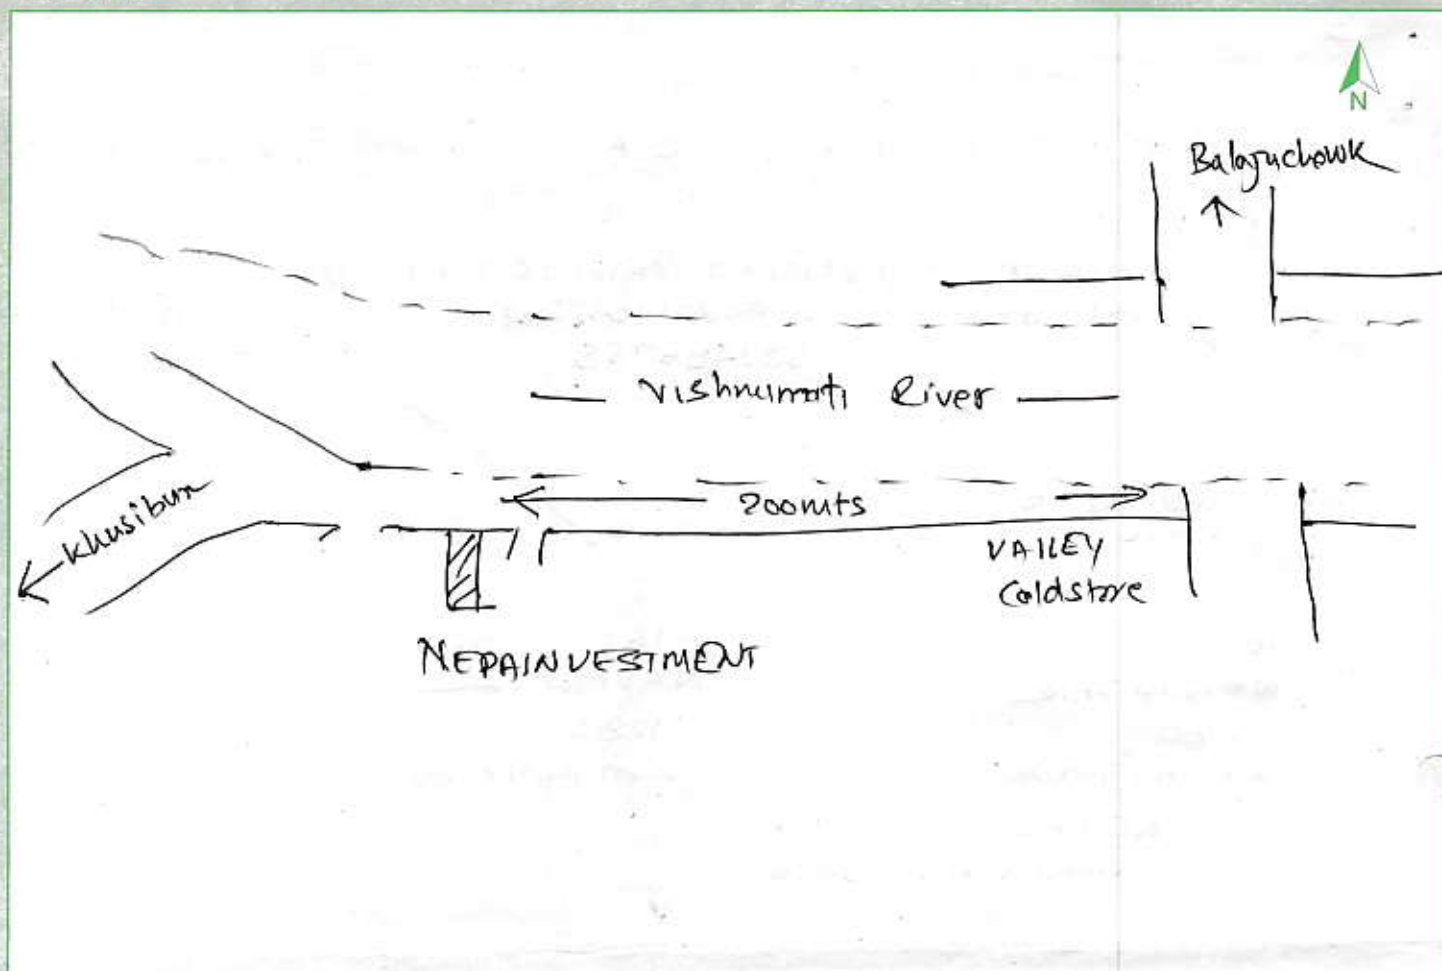 N
Balajuchowk
Vishnumati River
200mts
Khusibun
VALLEY
Coldstore
NEPAINVESTMENT